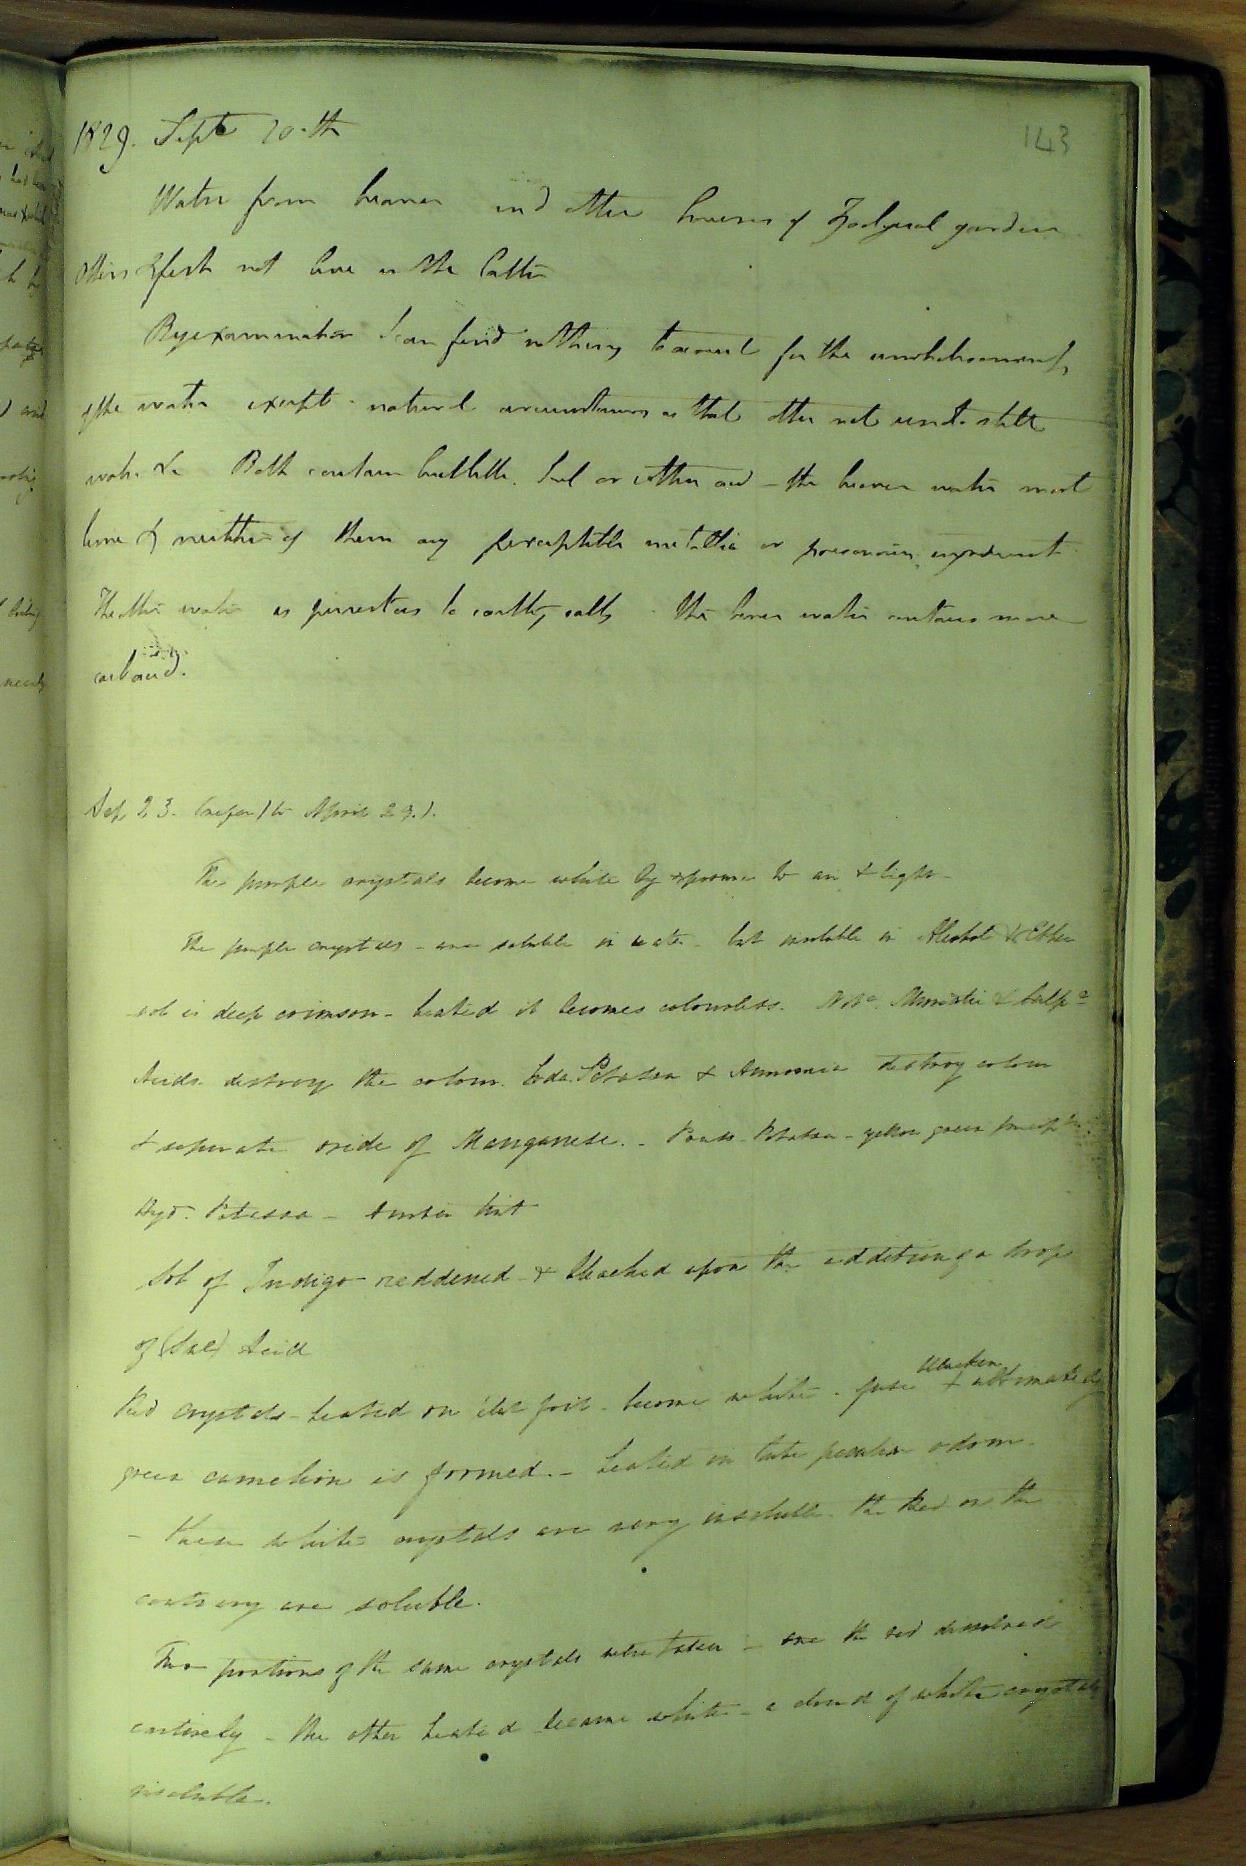 143
1829. Sept 20.th
Water from beaver and otter houses of Zoological gardens
Otters & fish not live in the latter
By examination I can find nothing to account for the unwholesomeness
of the water except natural circumstances as that otter not under still
water &c Both contain little Sul or other acid - the beaver water most
lime & neither of them any perceptible metallic or poisonous ingredient
The otter water is purest as to earthy salts. The beaver water contains more
carb acid.
Sep 23. (refer) to April 29.).
The purple crystals become white by exposure to air & light
The purple crystals - are soluble in water - but insoluble in Alcohol & Ether
sol is deep crimson - heated it becomes colourless. Muriatic & Sulpc
Acids. destroy the colour. Soda. Potassa & Ammonia destroy colour
& separate oxide of Manganese. - Potassa - yellow green
Hyd. Potassa - tint
Sol of Indigo reddened & bleached upon the addition of a drop
of (Sul) Acid
Red crystals - heated on foil - become white - fuse blacken & ultimately
green camelion is formed. - heated in tube peculiar odour.
- these white crystals are very insoluble. the Red on the
contrary are soluble.
Two portions of the same crystals were taken - one the red dissolved
entirely - the other heated became white - a cloud of white crystals
insoluble.